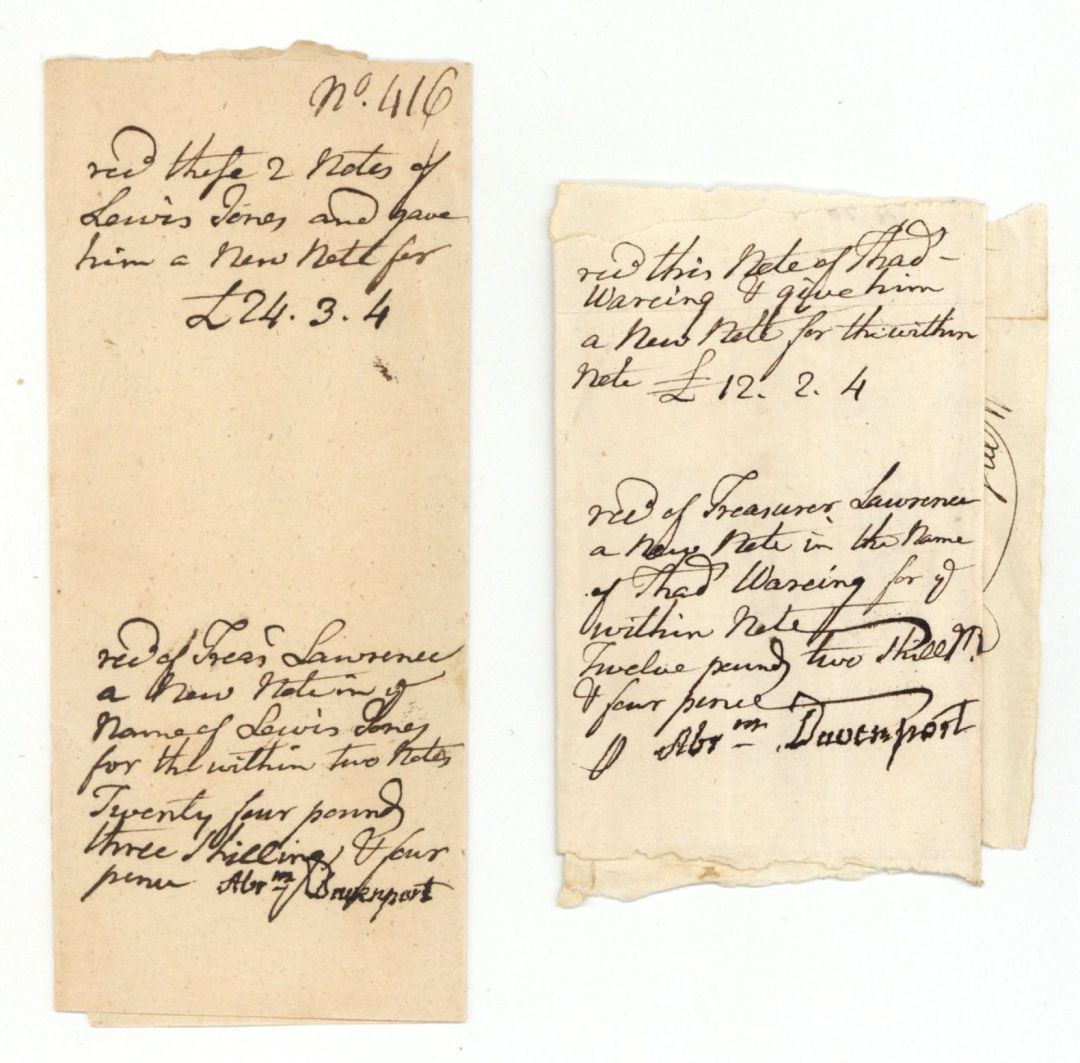 No. 416
recd these 2 Notes of
Lewis Jones and gave
him a New Note for
£24. 3. 4
recd of Treas Lawrence
a New Note in ye
Name of Lewis Jones
for the within two Notes
Twenty four pounds
three shillings & four
pence Abrm Davenport
recd this Note of Thad
Wareing & give him
a New Note for the within
Note £ 12. 2. 4
recd of Treasurer Lawrence
a New Note in the Name
of Thad Wareing for ye
within Note
Twelve pounds two Shill
& four pence
Abrm Davenport